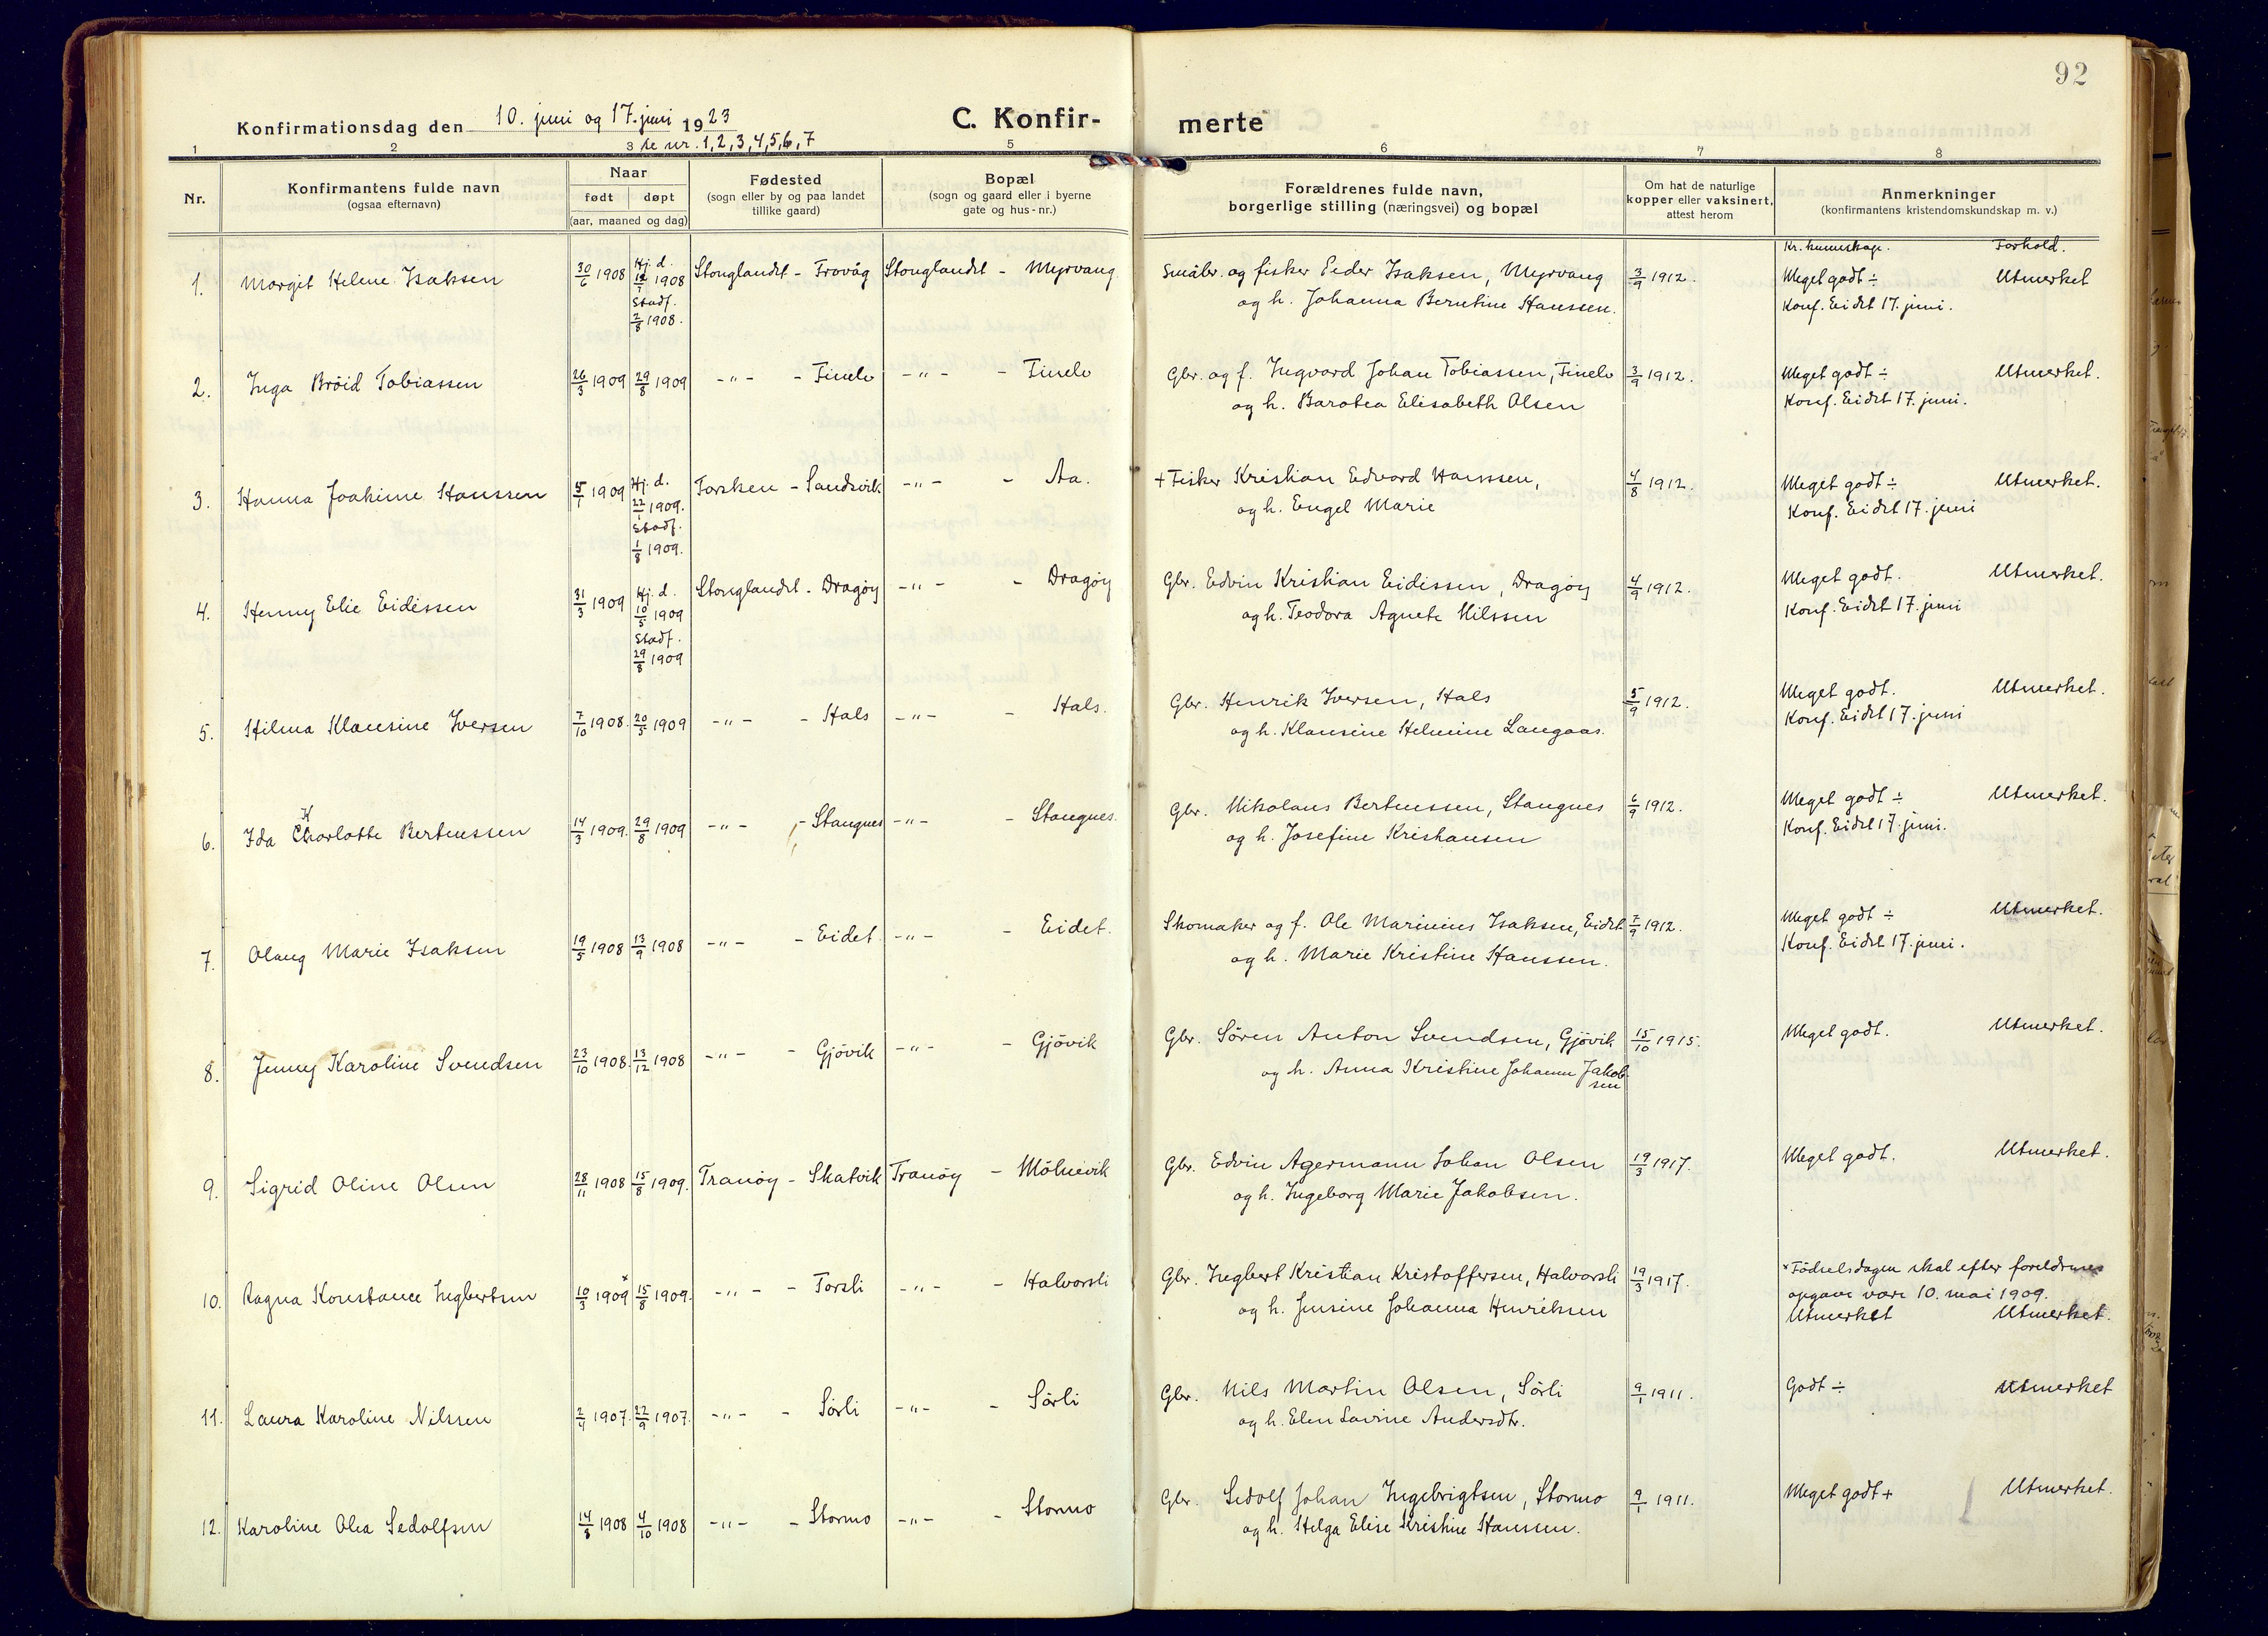 92
Konfirmationsdag den 10. juni og 17. juni 1923
se nr. 1, 2, 3, 4, 5, 6, 7
C. Konfirmerte
1 2 3 5 6 7 8
Nr.
Konfirmantens fulde navn
(ogsaa efternavn)
Naar
født døpt
(aar, maaned og dag)
Fødested
(sogn eller by og paa landet
tillike gaard)
Bopæl
(sogn og gaard eller i byerne
gate og hus-nr.)
Forældrenes fulde navn,
borgerlige stilling (næringsvei) og bopæl
Om hat de naturlige
kopper eller vaksinert,
attest herom
Anmerkninger
(konfirmantens kristendomskundskap m. v.)
Kr. kunnskap. Forhold.
1. Margit Helene Isaksen 30/6 1908 Hj. d. 1908 Stonglandet - Frovåg Stonglandet - Myrvang Småbr. og fisker Peder Isaksen, Myrvang 3/9 1912. Meget godt ÷ Utmerket
Stadf. og h. Johanna Berntine Hanssen. Konf. Eidet 17. juni.
2/8 1908.
2. Inga Bröid Tobiassen 26/3 1909 29/8 1909 -"- - Finelv -"- - Finelv Gbr. og f. Ingvard Johan Tobiassen, Finelv 3/9 1912. Meget godt ÷ Utmerket.
og h. Barotea Elisabeth Olsen Konf. Eidet 17. juni.
3. Hanna Joakime Hanssen 5/1 1909 Hj. d. Torsken - Sandsvik -"- - Aa. + Fisker Kristian Edvard Hanssen, 4/8 1912. Meget godt ÷ Utmerket.
22/1 1909. og h. Engel Marie Konf. Eidet 17. juni
Stadf.
1/8 1909.
4. Henny Elie Eidissen 31/3 1909 Hj. d. Stonglandet - Dragøy -"- - Dragøy Gbr. Edvin Kristian Eidissen, Dragøy 4/9 1912. Meget godt. Utmerket.
10/5 1909 og h. Teodora Agnete Nilssen Konf. Eidet 17. juni
Stadf.
29/8 1909
5. Hilma Klausine Iversen 7/10 1908. 20/5 1909 -"- - Hals -"- - Hals. Gbr. Henrik Iversen, Hals 5/9 1912. Meget godt. Utmerket.
og h. Klausine Helmine Langaas. Konf. Eidet 17. juni
K
6. Ida Charlotte Berteussen 14/3 1909. 29/8 1909 -"- - Stangnes -"- - Stangnes. Gbr. Nikolaus Berteussen, Stangnes 6/9 1912. Meget godt ÷ Utmerket.
og h. Josefine Kristiansen Konf. Eidet 17. juni.
7. Olaug Marie Isaksen 19/5 1908 13/9 1908 -"- - Eidet -"- - Eidet. Skomaker og f. Ole Marinius Isaksen, Eidet 7/9 1912. Meget godt ÷ Utmerket.
og h. Marie Kristine Hanssen. Konf. Eidet 17. juni.
8. Jenny Karoline Svendsen 23/10 1908. 13/12 1908 -"- - Gjövik -"- - Gjövik Gbr. Sören Anton Svendsen, Gjövik 15/10 1915. Meget godt. Utmerket.
og h. Anna Kristine Johanna Jakob-
sen
9. Sigrid Oline Olsen 28/11 1908 15/8 1909. Tranöy - Skatvik Tranöy - Mölnevik Gbr. Edvin Agermann Johan Olsen 19/3 1917. Meget godt. Utmerket.
og h. Ingeborg Marie Jakobsen.
10. Ragna Konstance Ingbertsen 10/3 1909 x 15/8 1909. -"- - Forsli -"- - Halvorsli Gbr. Ingbert Kristian Kristoffersen, Halvorsli 19/3 1917. x Födselsdagen skal efter foreldrenes
opgave være 10. mai 1909.
og h. Jensine Johanna Henriksen Utmerket Utmerket.
11. Laura Karoline Nilssen 2/4 1907. 22/9 1907. -"- - Sörli -"- - Sörli Gbr. Nils Martin Olsen, Sörli 9/1 1911. Godt ÷ Utmerket
og h. Elen Lovine Andersdtr.
12. Karoline Olea Sedolfsen 14/8 1908 4/10 1908 -"- - Stormo -"- - Stormo Gbr. Sedolf Johan Ingebrigtsen, Stormo 9/1 1911. Meget godt + Utmerket.
og h. Helga Elise Kristine Hanssen.